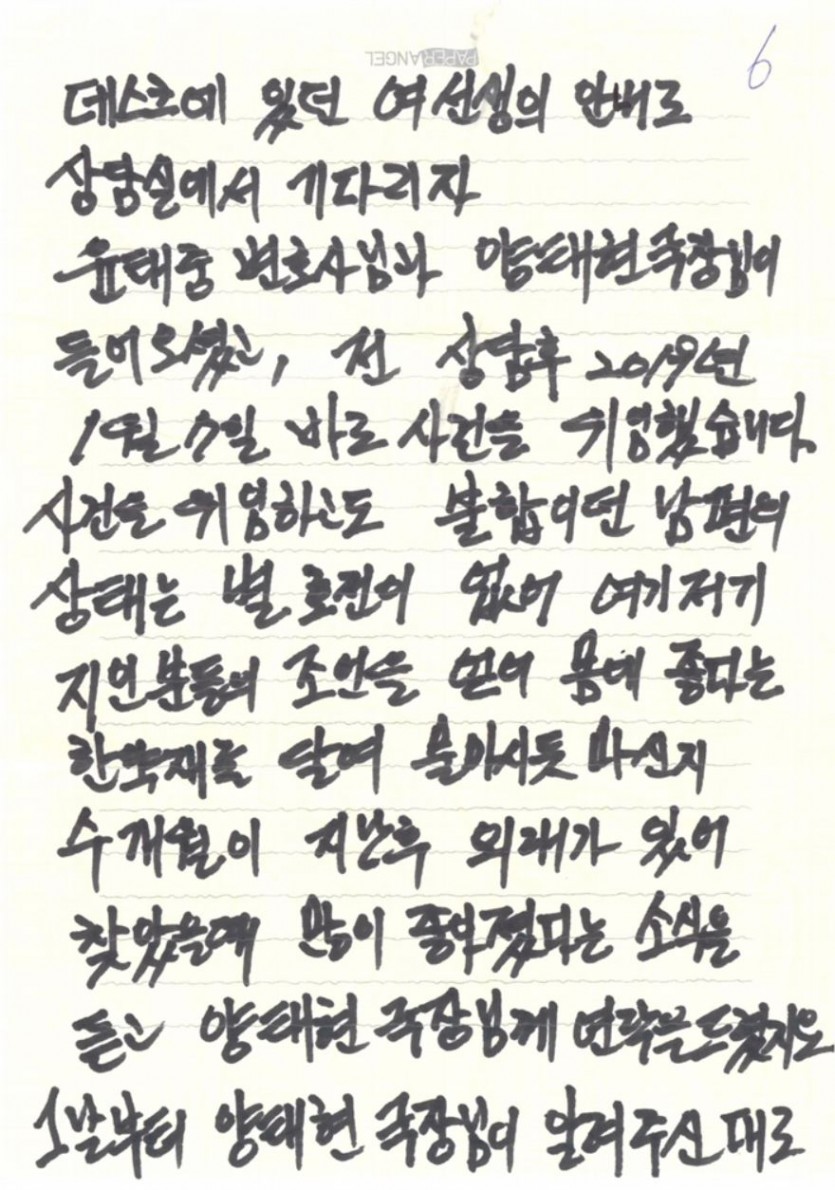 PAPER ANGEL
6
데스크에 있던 여선생의 안내로
상담실에서 기다리자
윤태중 변호사님과 양태현국장님이
들어오셨고, 전 상담후 2019년
1월 7일 바로 사건을 위임했습니다.
사건을 위임하고도 불합이던 남편의
상태는 별 호전이 없어 여기저기
지인분들의 조언을 얻어 몸에 좋다는
한약재를 달여 물마시듯 마신지
수개월이 지난후 외래가 있어
찾았을때 많이 좋아졌다는 소식을
듣고 양태현 국장님께 연락을드렸지요
그날부터 양태현 국장님이 알려주신대로